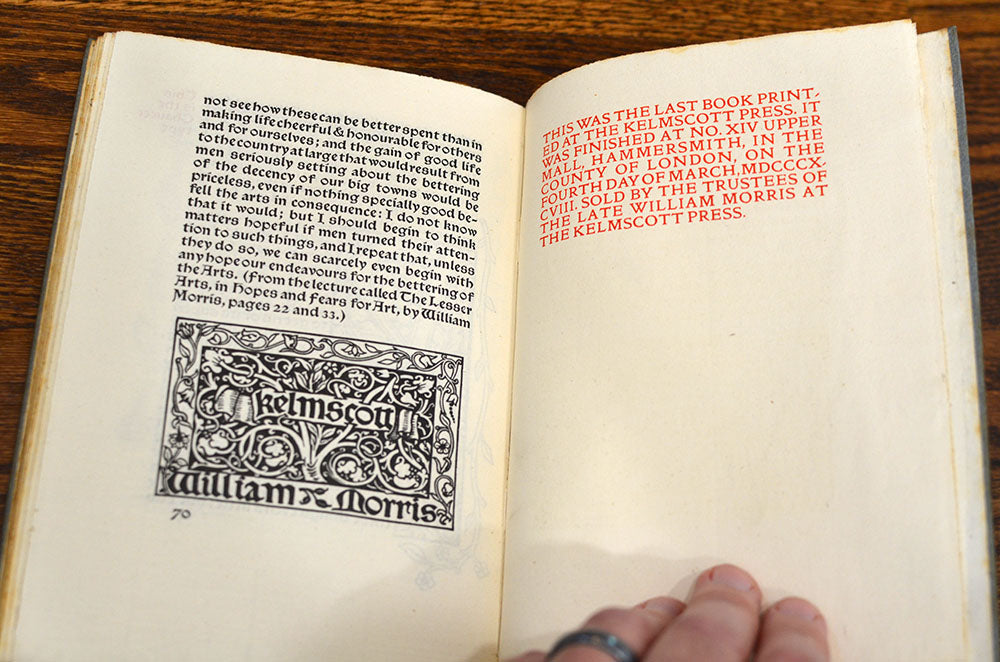 not see how these can be better spent than in
making life cheerful & honourable for others
and for ourselves; and the gain of good life
to the country at large that would result from
men seriously setting about the bettering
of the decency of our big towns would be
priceless, even if nothing specially good be-
fell the arts in consequence: I do not know
that it would; but I should begin to think
matters hopeful if men turned their atten-
tion to such things, and I repeat that, unless
they do so, we can scarcely even begin with
any hope our endeavours for the bettering of
the Arts. (From the lecture called The Lesser
Arts, in Hopes and Fears for Art, by William
Morris, pages 22 and 33.)
kelmscott
William Morris
70
THIS WAS THE LAST BOOK PRINT-
ED AT THE KELMSCOTT PRESS. IT
WAS FINISHED AT NO. XIV UPPER
MALL, HAMMERSMITH, IN THE
COUNTY OF LONDON, ON THE
FOURTH DAY OF MARCH, MDCCCX-
CVIII. SOLD BY THE TRUSTEES OF
THE LATE WILLIAM MORRIS AT
THE KELMSCOTT PRESS.